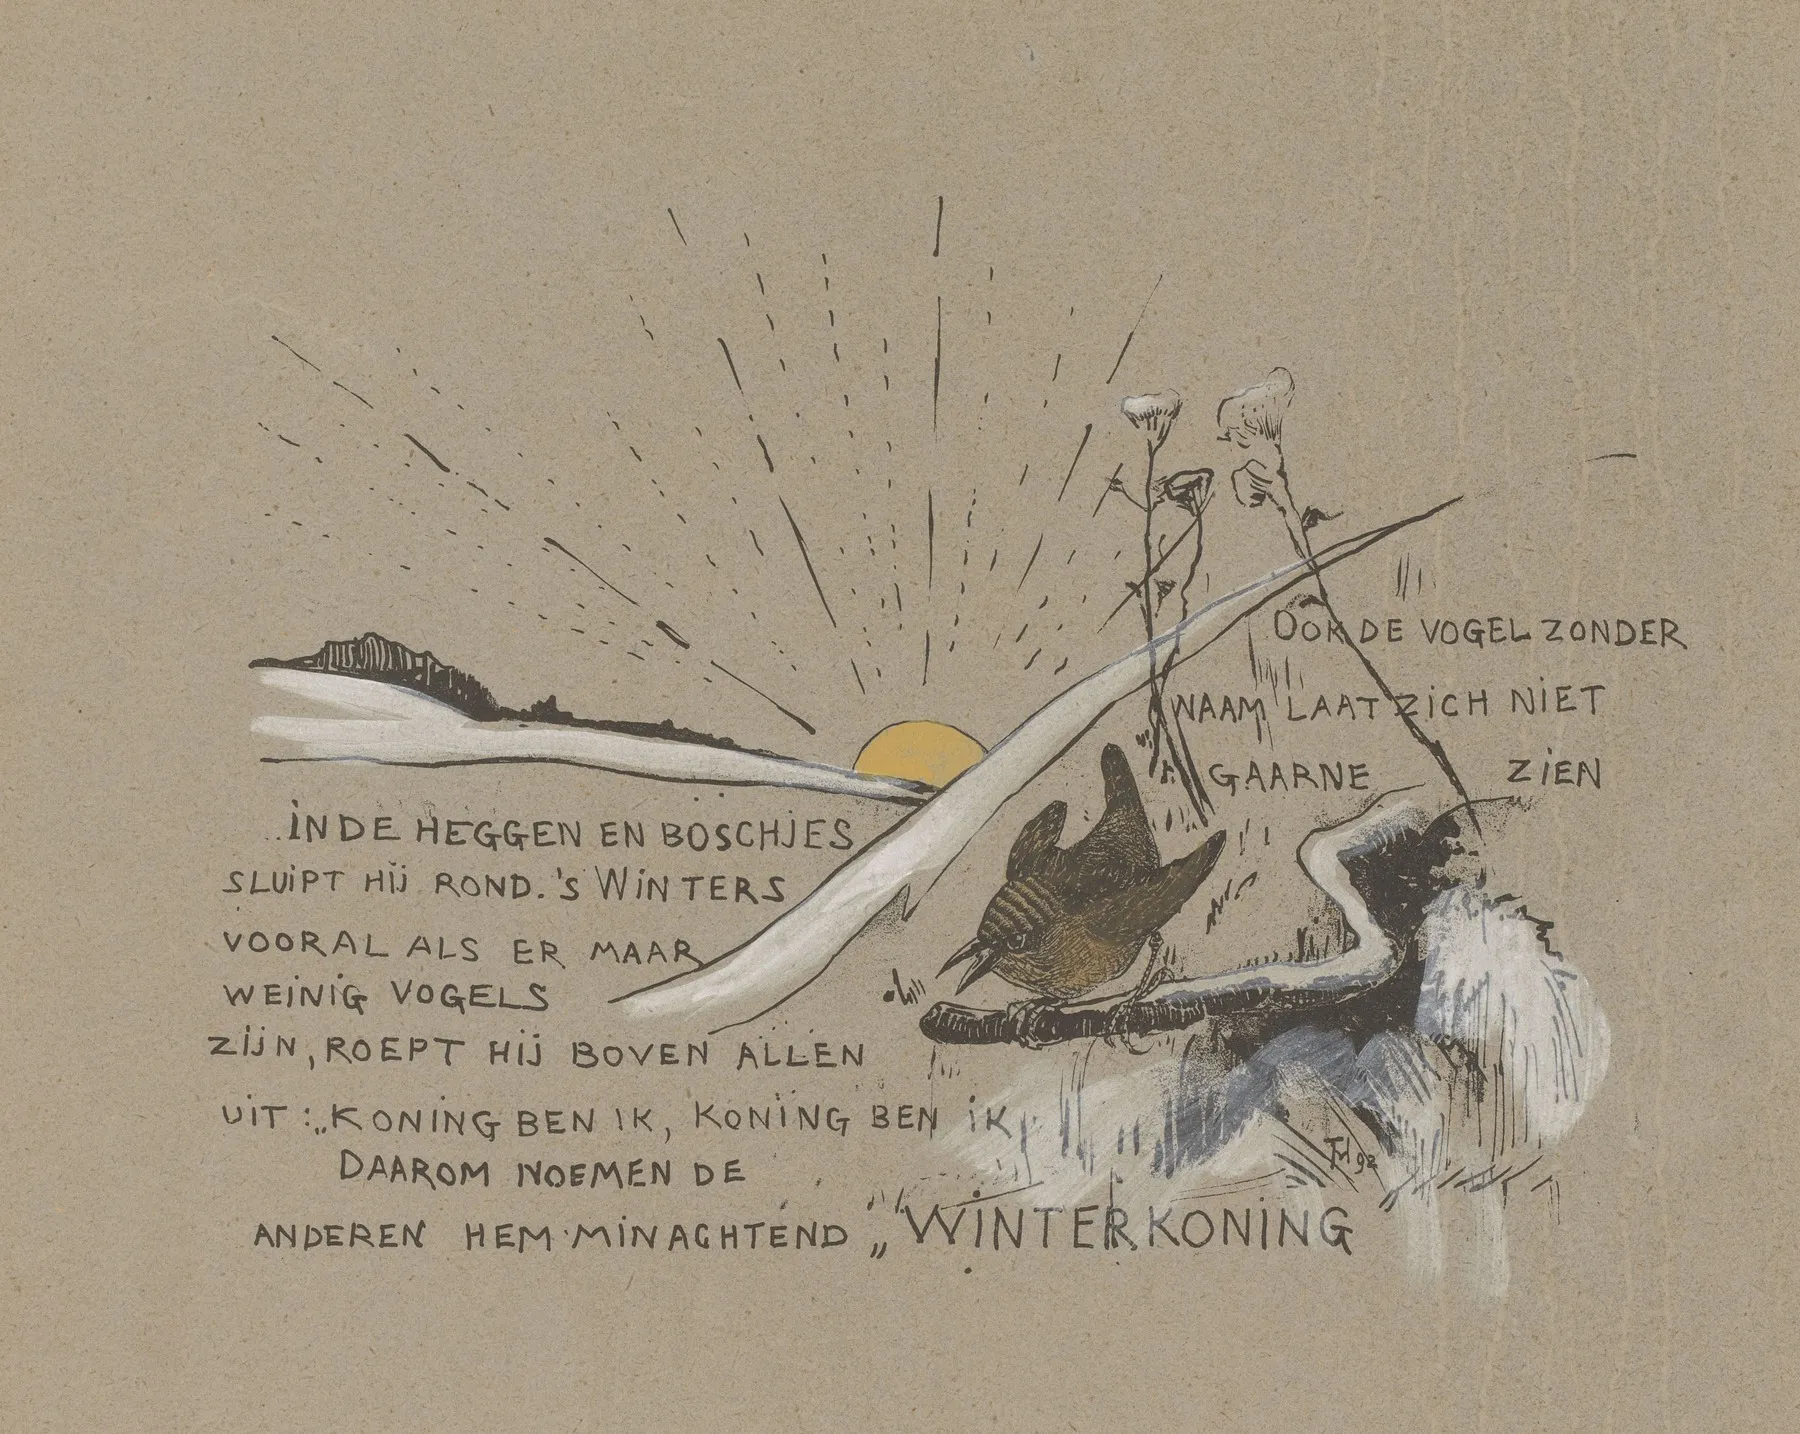 OOK DE VOGEL ZONDER
NAAM LAAT ZICH NIET
GAARNE ZIEN
IN DE HEGGEN EN BOSCHJES
SLUIPT HIJ ROND. 'S WINTERS
VOORAL ALS ER MAAR
WEINIG VOGELS
ZIJN, ROEPT HIJ BOVEN ALLEN
UIT : „KONING BEN IK, KONING BEN IK,
DAAROM NOEMEN DE
ANDEREN HEM MINACHTEND „WINTERKONING
TH 92